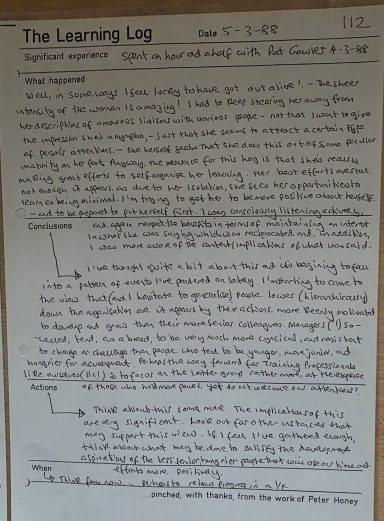 112
The Learning Log Date 5-3-88
Significant experience Spent an hour and a half with Pat Gowler 4-3-88
What happened
Well, in some ways I feel lucky to have got out alive! - The sheer
intensity of the woman is amazing! I had to keep steering her away from
her descriptions of amorous liaisons with various people - not that I want to give
the impression she's a nympho, - just that she seems to attract a certain type
of person's attentions. - She herself seeks that She does this out of some peculiar
maturity on her part. Anyway, the for this log is that she's really
making great efforts to self organise her learning. Her best efforts are still
not enough it appears, as due to her isolation, she sees her opportunities to
learn as being minimal. I'm trying to get her to be more positive about herself
- and to be prepared to put herself first. I was consciously listening actively,
Conclusions and again reaped the benefits in terms of maintaining an interest
in what she was saying which was reciprocated and, in addition,
I was more aware of the content/implications of what was said.
I've thought quite a bit about this and it's beginning to fall
into a pattern of events I've pondered on lately. I'm starting to come to
the view that (and I hesitate to generalise) people lower (hierarchically)
down the organisation are it appears by their actions, more keenly motivated
to develop and grow than their more senior colleagues. Managers(!) so-
called, tend, as a breed, to be very much more cynical, and resistant
to change or challenge than people who tend to be younger, more junior, and
hungrier for development. Perhaps the way forward for Training Professionals
like ourselves (sic!) is to focus on the latter group rather more, at the expense
Actions of those who hold most power, yet do not welcome our attentions?.
Think about this some more. The implications of this
are very significant. Look out for other instances that
may support this view. - If I feel I've gathered enough,
think about what may be done to satisfy the development
aspirations of the less senior/hungrier people that will use our time and
When efforts more positively.
Think from now - perhaps to review progress in a 1/4
...pinched, with thanks, from the work of Peter Honey